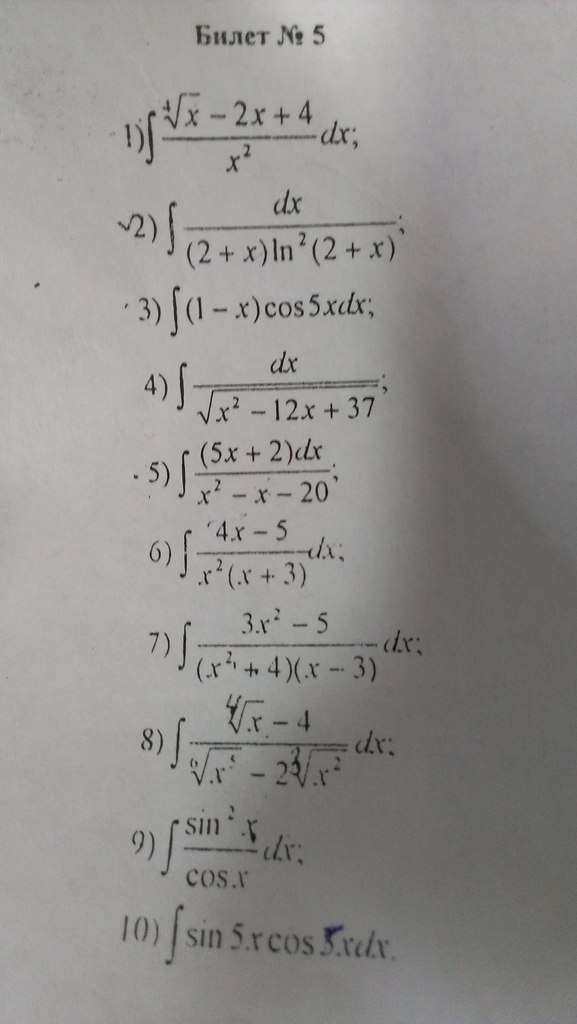 Билет № 5
1) ∫ (∜x − 2x + 4)/x² dx;
2) ∫ dx/((2 + x)ln²(2 + x));
3) ∫(1 − x)cos5xdx;
4) ∫ dx/√(x² − 12x + 37);
5) ∫ (5x + 2)dx/(x² − x − 20);
6) ∫ (4x − 5)/(x²(x + 3)) dx;
7) ∫ (3x² − 5)/((x² + 4)(x − 3)) dx;
8) ∫ (∜x − 4)/(⁶√x − 2∛x²) dx;
9) ∫ sin²x/cosx dx;
10) ∫ sin5xcos5xdx.